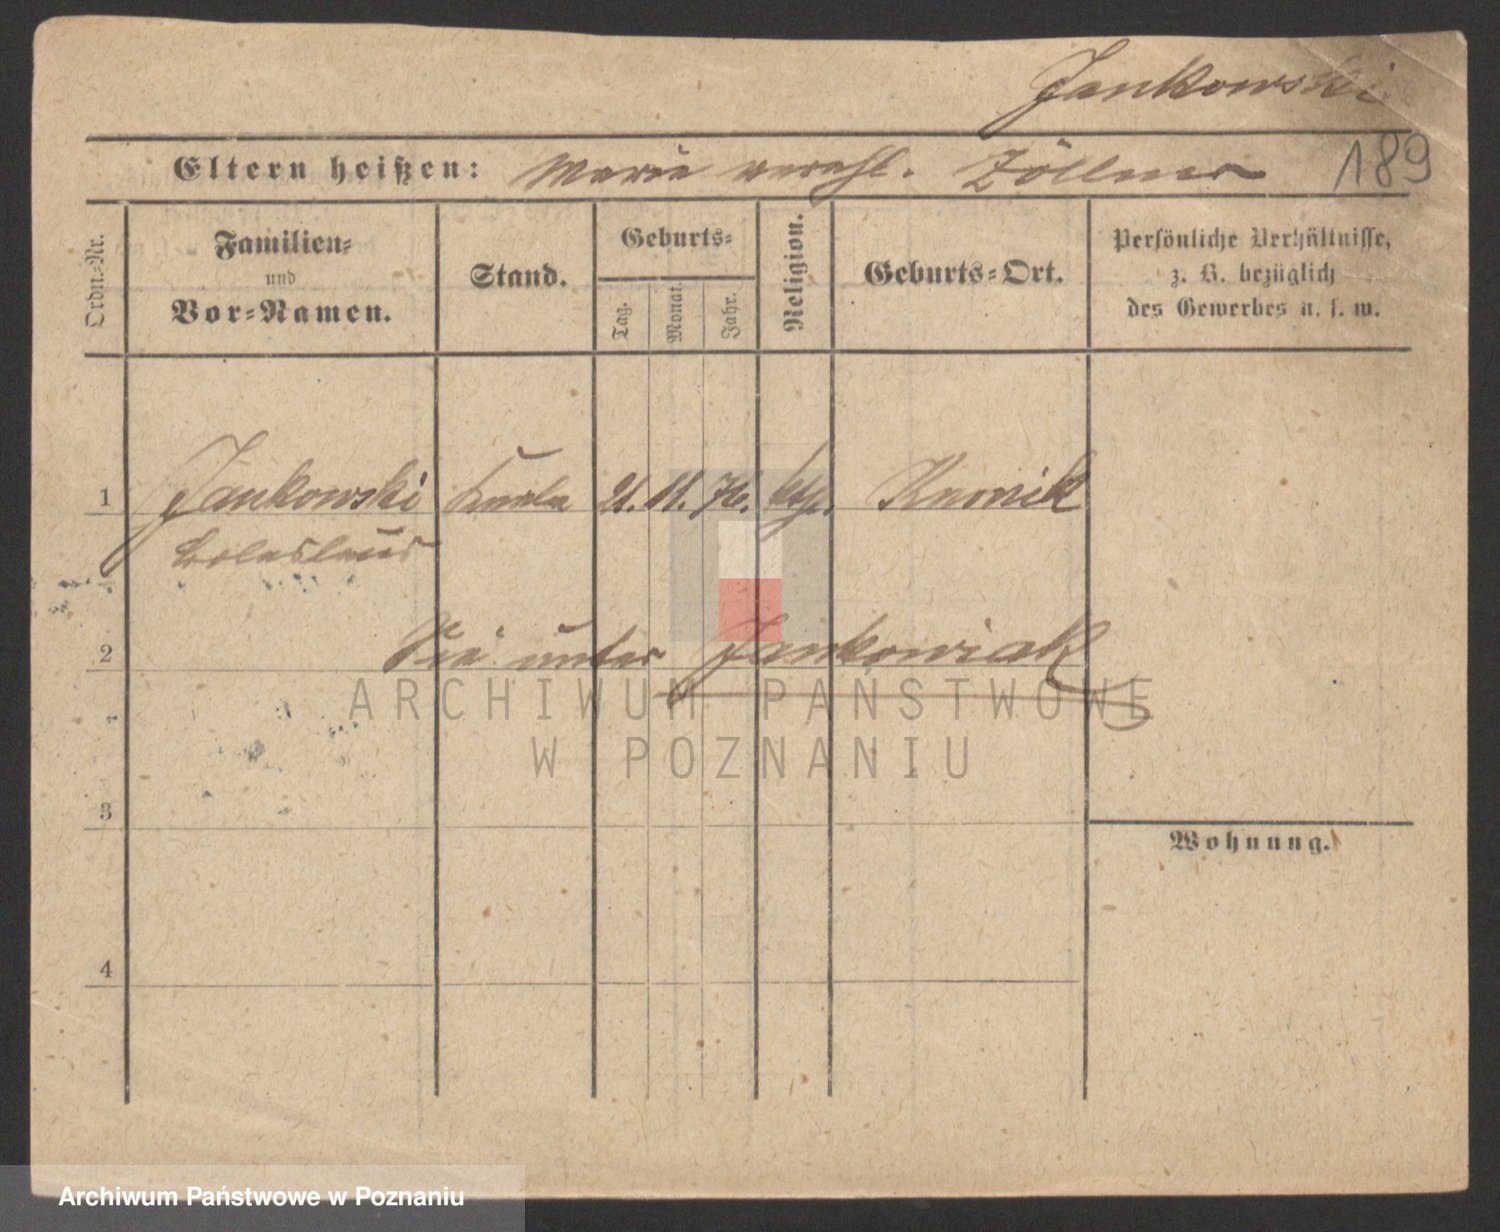 Jankowski
189
Eltern heißen: Marie verehl. Zöllner
Ordn=Nr.
Familien=
und
Vor=Namen.
Stand.
Geburts=
Tag.
Monat.
Jahr.
Religion.
Geburts=Ort.
Persönliche Verhältnisse,
z. B. bezüglich
des Gewerbes u. s. w.
1 Jankowski 21. 11. 76. kth.
Boleslaus
2 Sie unter Jankowiak
3
4
Wohnung.
ARCHIWUM PAŃSTWOWE
W POZNANIU
Archiwum Państwowe w Poznaniu